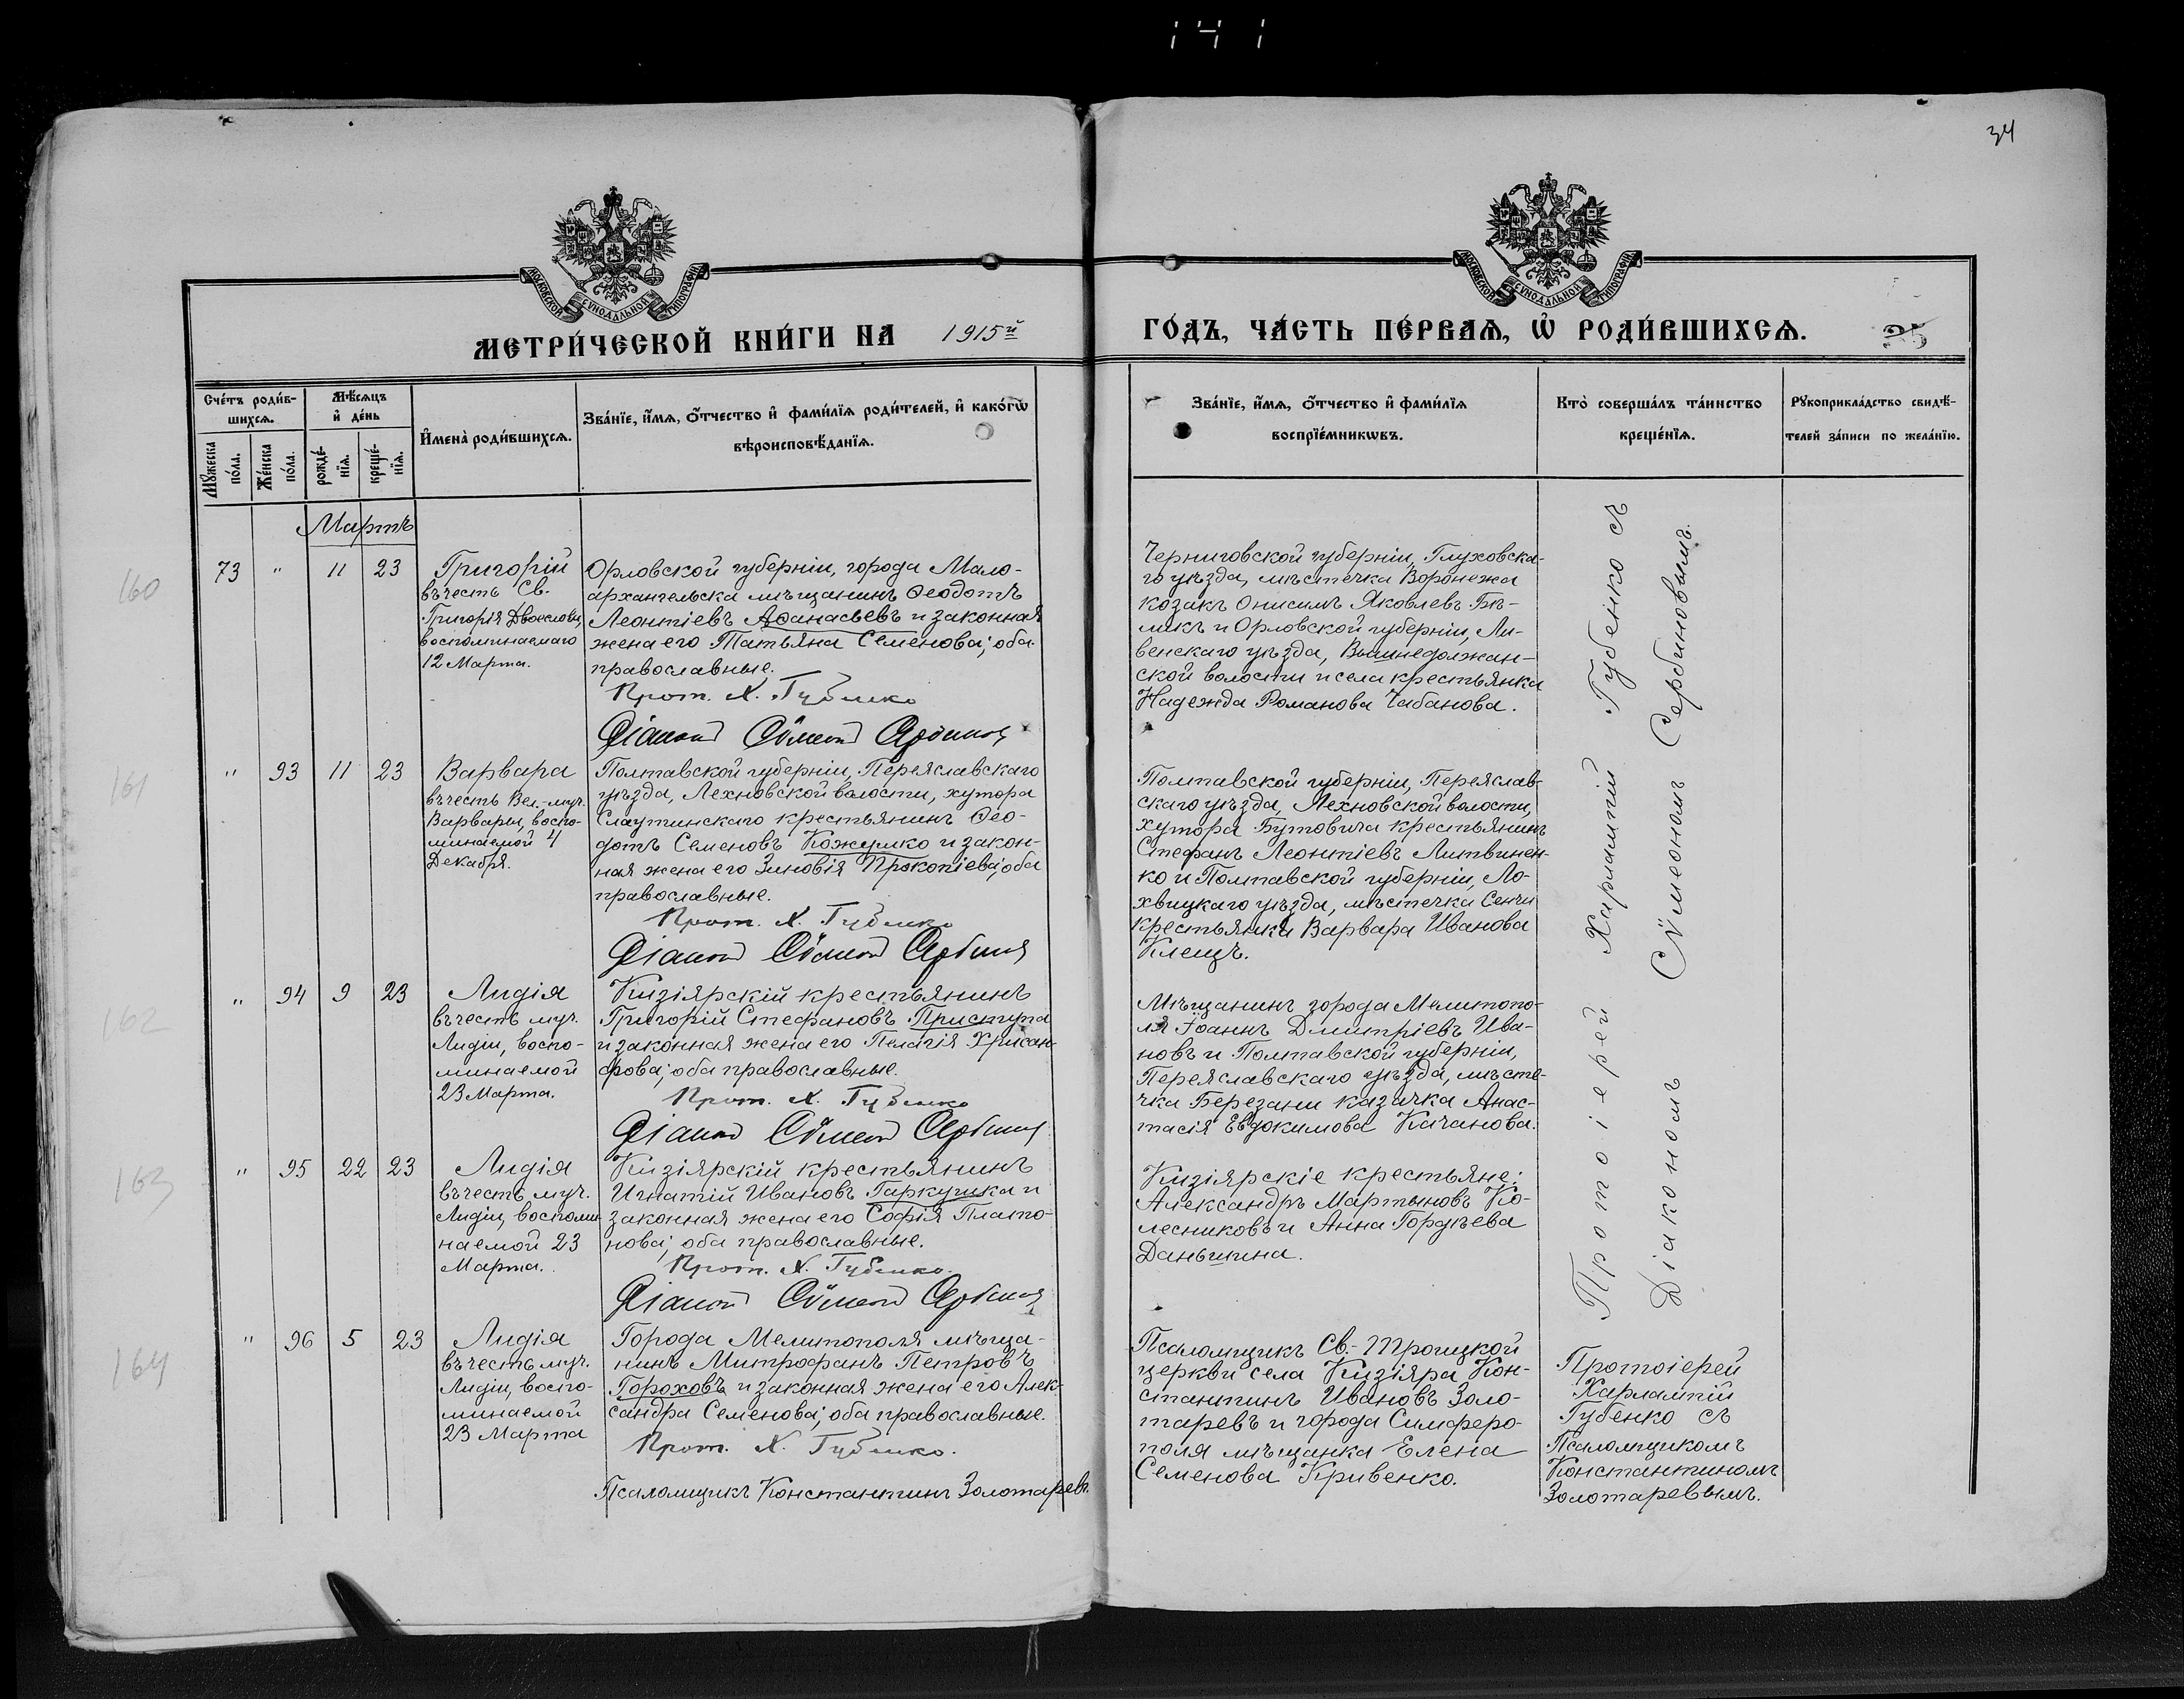 141
34
МОСКОВСКОЙ СѴНОДАЛЬНОЙ ТИПОГРАФІИ
МОСКОВСКОЙ СѴНОДАЛЬНОЙ ТИПОГРАФІИ
МЕТРИ́ЧЕСКОЙ КНИ́ГИ НА 1915й
ГО́ДЪ, ЧА́СТЬ ПЕ́РВАѦ, Ѿ РОДИ́ВШИХСѦ.
35
Сче́тъ роди́в-
шихсѧ.
Мꙋ́жеска по́ла.
Же́нска по́ла.
Мѣ́сѧцъ
и҆ де́нь
рожде́-нїѧ.
креще́-нїѧ.
И҆мена̀ роди́вшихсѧ.
Зва́нїе, и҆́мѧ, ѻ҆́тчество и҆ фами́лїѧ роди́телей, и҆ како́гѡ
вѣроисповѣ́данїѧ.
Зва́нїе, и҆́мѧ, ѻ҆́тчество и҆ фами́лїѧ
воспрїе́мникѡвъ.
Кто̀ соверша́лъ та́инство
креще́нїѧ.
Рꙋкоприкла́дство свидѣ́-
телей за́писи по жела́нїю.
Мартъ
160
73 " 11 23
Григорій
въ честь Св.
Григорія Двоеслова,
воспоминаемаго
12 Марта.
Орловской губерніи, города Мало-
архангельска мѣщанинъ Ѳеодотъ
Леонтіевъ Аѳанасьевъ и законная
жена его Татьяна Семенова; оба
православные.
Прот. Х. Губенко
Діаконъ Сѷмеонъ Сербиновъ
Черниговской губерніи, Глуховска-
го уѣзда, мѣстечка Воронежа
козакъ Онисимъ Яковлевъ Бѣ-
ликъ и Орловской губерніи, Ли-
венскаго уѣзда, Вышнедолжан-
ской волости и села крестьянка
Надежда Романова Чабанова.
161
" 93 11 23
Варвара
въ честь Вел.-муч.
Варвары, воспо-
минаемой 4
Декабря.
Полтавской губерніи, Переяславскаго
уѣзда, Лехновской волости, хутора
Слаутинскаго крестьянинъ Ѳео-
дотъ Семеновъ Кожушко и закон-
ная жена его Зиновія Прокопіева; оба
православные.
Прот. Х. Губенко
Діаконъ Сѷмеонъ Сербиновъ
Полтавской губерніи, Переяслав-
скаго уѣзда, Лехновской волости,
хутора Бутовича крестьянинъ
Стефанъ Леонтіевъ Литвинен-
ко и Полтавской губерніи, Ло-
хвицкаго уѣзда, мѣстечка Сенчи
крестьянка Варвара Иванова
Клещъ.
162
" 94 9 23
Лидія
въ честь муч.
Лидіи, воспо-
минаемой
23 Марта.
Кизіярскій крестьянинъ
Григорій Стефановъ Приступа
и законная жена его Пелагія Хрисан-
фова; оба православные.
Прот. Х. Губенко
Діаконъ Сѷмеонъ Сербиновъ
Мѣщанинъ города Мелитопо-
ля Іоаннъ Дмитріевъ Ива-
новъ и Полтавской губерніи,
Переяславскаго уѣзда, мѣсте-
чка Березани казачка Анас-
тасія Евдокимова Качанова.
163
" 95 22 23
Лидія
въ честь муч.
Лидіи, воспоми-
наемой 23
Марта.
Кизіярскій крестьянинъ
Игнатій Ивановъ Гаркушка и
законная жена его Софія Плато-
нова; оба православные.
Прот. Х. Губенко.
Діаконъ Сѷмеонъ Сербиновъ
Кизіярскіе крестьяне:
Александръ Мартыновъ Ко-
лесниковъ и Анна Гордѣева
Даньшина.
Протоіерей Харлампій Губенко съ
Діакономъ Сѷмеономъ Сербиновымъ.
164
" 96 5 23
Лидія
въ честь муч.
Лидіи, воспо-
минаемой
23 Марта
Города Мелитополя мѣща-
нинъ Митрофанъ Петровъ
Гороховъ и законная жена его Алек-
сандра Семенова; оба православные.
Прот. Х. Губенко.
Псаломщикъ Константинъ Золотаревъ.
Псаломщикъ Св.-Троицкой
церкви села Кизіяра Кон-
стантинъ Ивановъ Золо-
таревъ и города Симферо-
поля мѣщанка Елена
Семенова Кривенко.
Протоіерей
Харлампій
Губенко съ
Псаломщикомъ
Константиномъ
Золотаревымъ.